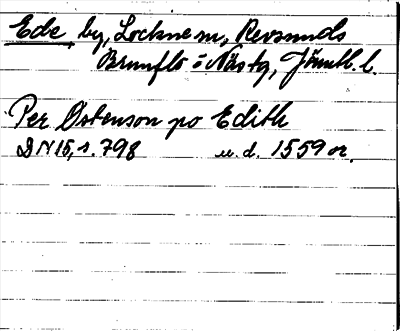 Ede by, Lockne sn, Revsunds
Brunflo o Näs tg, Jämtl. l.
Per Østenson po Edith
DN 15, s. 798 u. d. 1559 or.